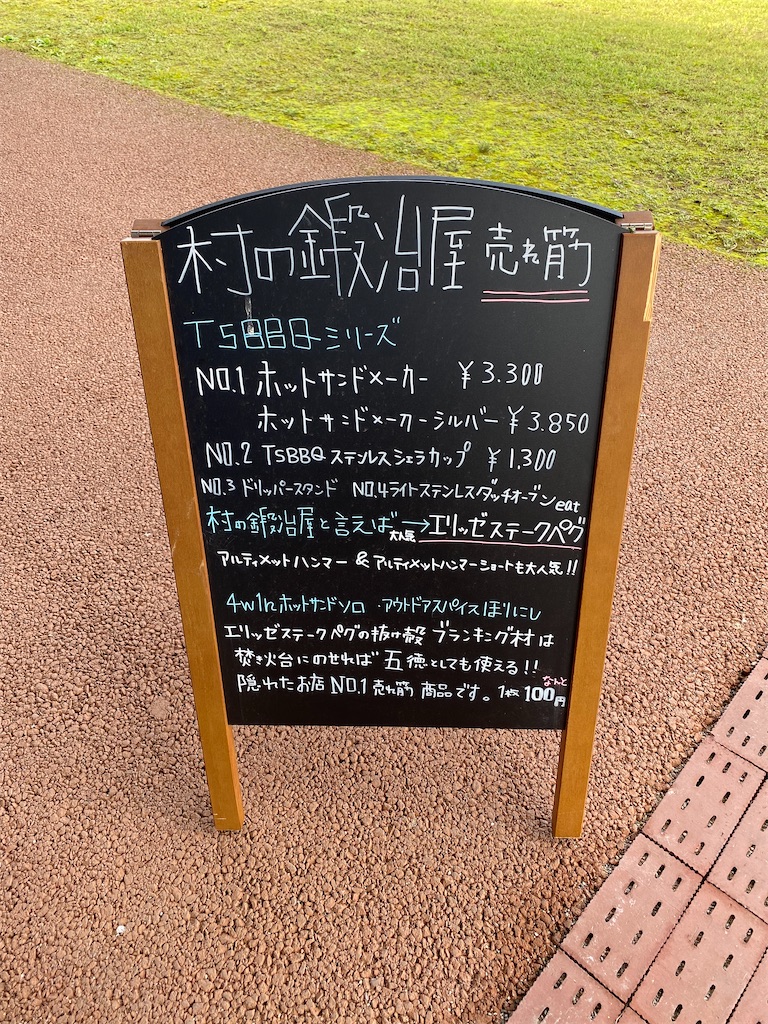 村の鍛冶屋 売れ筋
TSBBQシリーズ
NO.1 ホットサンドメーカー ¥3.300
ホットサンドメーカーシルバー ¥3.850
NO.2 TSBBQ ステンレスシェラカップ ¥1,300
NO.3 ドリッパースタンド NO.4 ライトステンレスダッチオーブン eat
村の鍛冶屋と言えば 大人気→エリッゼステークペグ
アルティメットハンマー & アルティメットハンマーショートも大人気!!
4w1h ホットサンドソロ ・アウトドアスパイス ほりにし
エリッゼステークペグの抜け殻 ブランキング材は
焚き火台にのせれば 五徳としても使える!!
隠れたお店 NO.1 売れ筋 商品です。1枚 なんと 100円